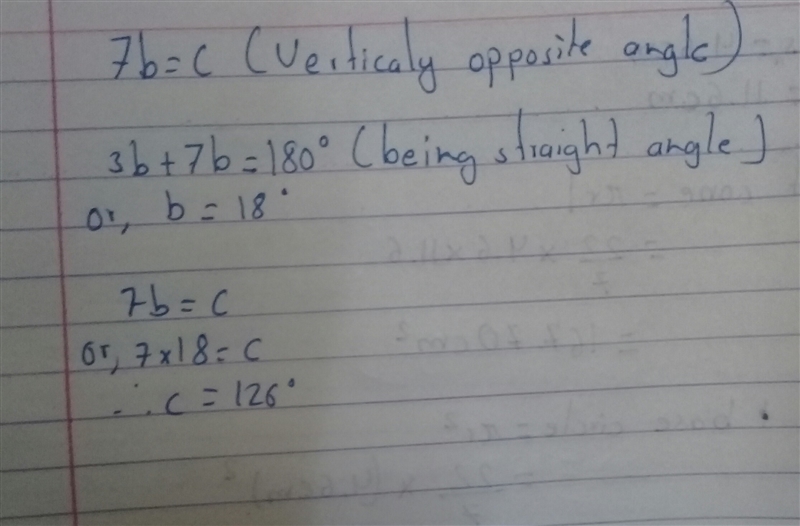 7b = c (Verticaly opposite angle)
3b + 7b = 180° (being straight angle)
or, b = 18°
7b = c
or, 7 × 18 = c
∴ c = 126°